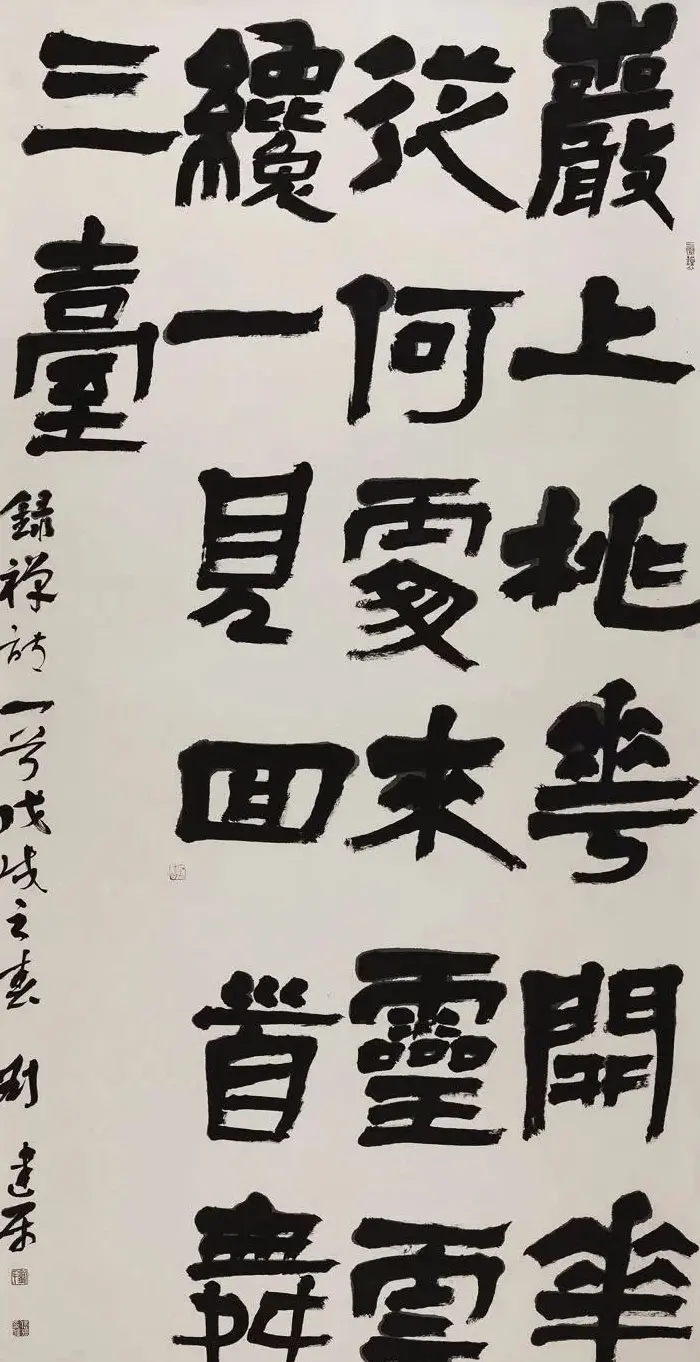 巖上桃華開華
從何處來靈雲
纔一見回首舞
三臺
録禅詩一首戊戌之春 劉建平